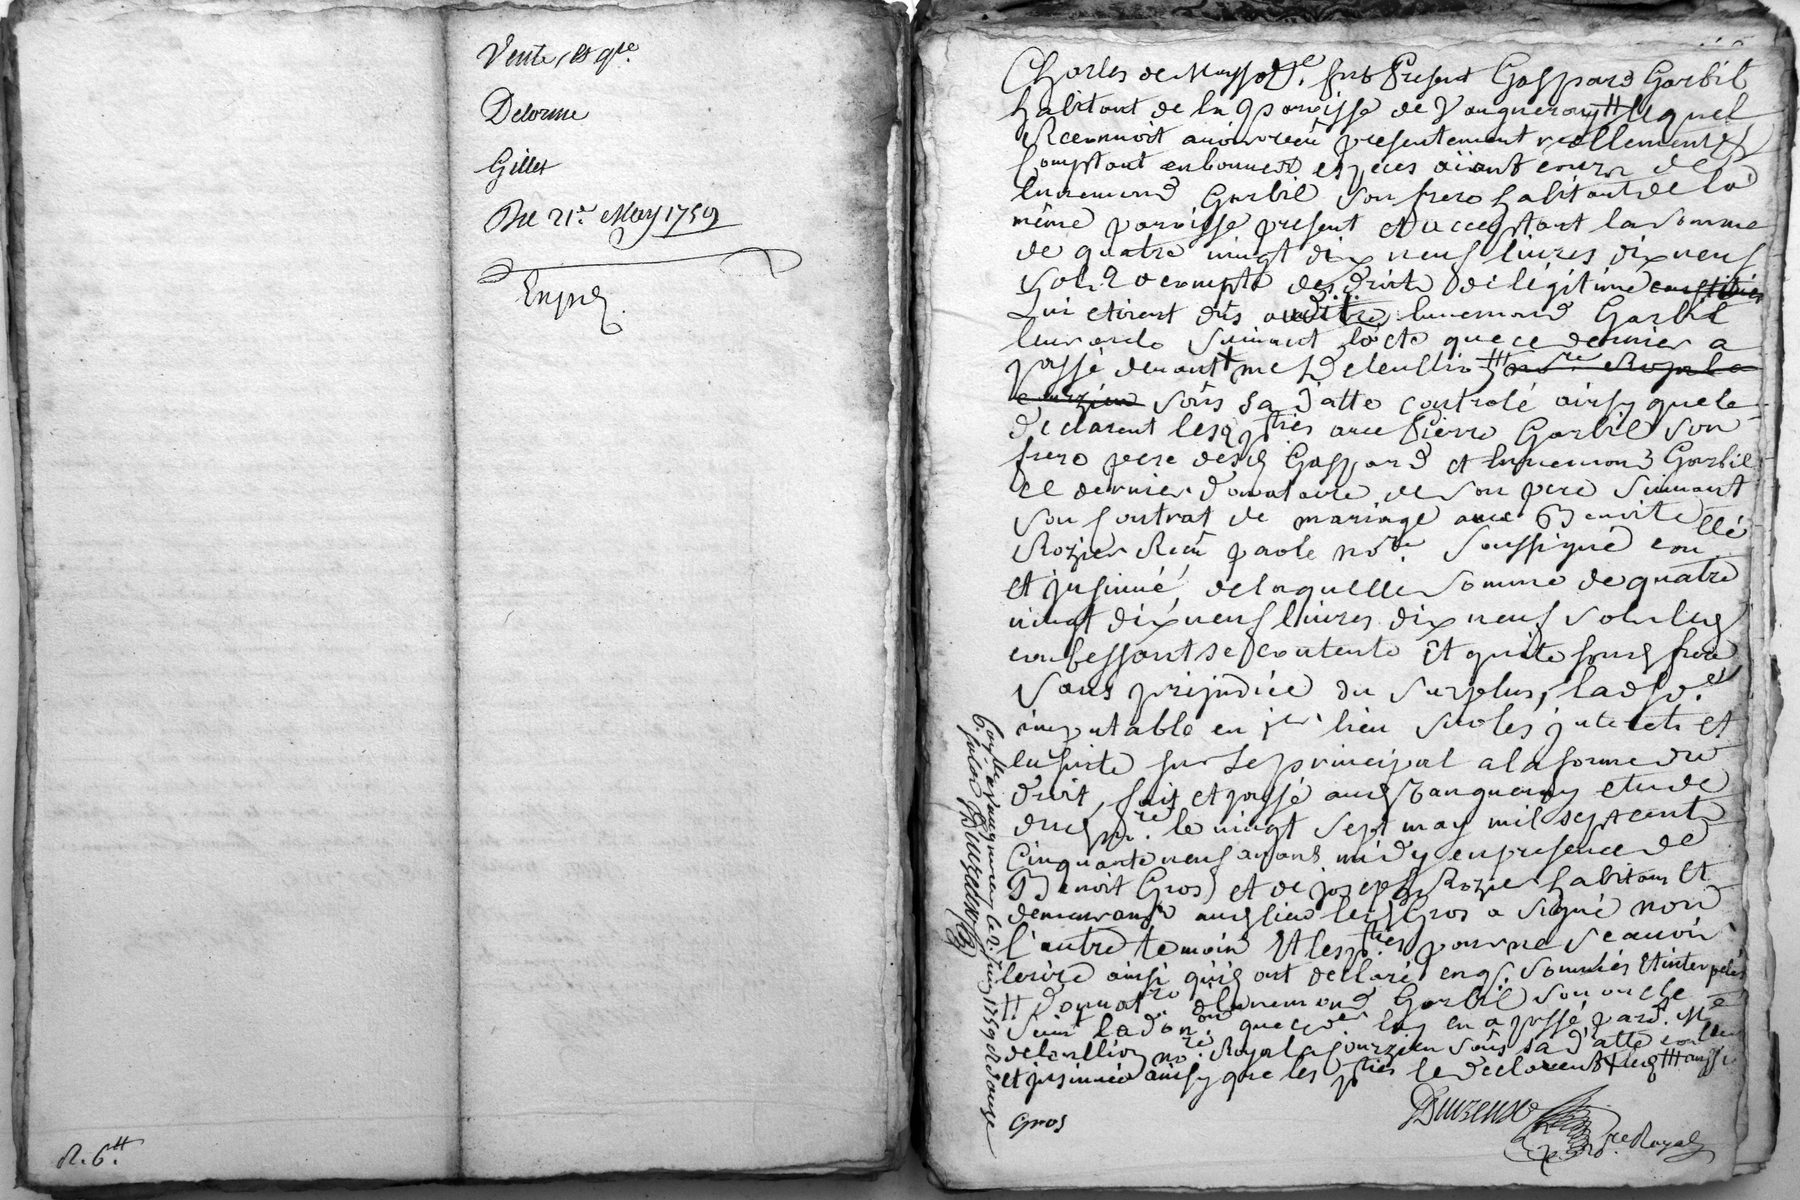 Vente, et q.te
Delorme
Gillet
Du 21.e May 1759
R. 6.tt
fut Present Gaspard Garbil
habitant de la paroisse de Vaugneray # lequel
Reconnoit avoir reçu presentement reellement &
comptant en bonnes especes aiant cours de
Ennemond Garbil son frere habitant de la
même paroisse present et acceptant la somme
de quatre vingt dix neuf livres dix neuf
sols a compte des droits de légitime
qui etoient dûs Ennemond Garbil
leur oncle suivant l'acte que ce dernier a
passé devant me Deleullion
sous sa datte controlé ainsy que le
declarent les parties avec Pierre Garbil son
frere pere desd Gaspard et Ennemond Garbil
ce dernier donataire de son pere suivant
son contrat de mariage avec Benoite
Rozier Reçu par le no.re soussigné con.llé
et insinué, de laquelle somme de quatre
vingt dix neuf livres dix neuf sols led
confessant se contente et quite sond frere
sans prejudice du surplus, lad so.e
imputable en 1.er lieu sur les interets et
ensuite sur le principal a la forme du
droit, fait et passé aud Vaugneray etude
dud no.re le vingt sept may mil sept cents
cinquante neuf avant midy en presence de
Benoit Gros et de joseph Rozier habitans et
demeurants aud lieu led Gros a signé non
l'autre temoin et les parties pour ne scavoir
ecrire ainsi qu'ils ont declaré enq. sommés et interpelés
# donnat.re d'Ennemond Garbil son oncle
suiv. la don.on que ced.er luy en a passé pard. M.e
deleullion no.re Royal a Courzieu sous sa datte con.llée
et insinuée ainsy que les parties le declarent
Gros
Duzeux
no.re Royal
6. Con.llé a Vaugneray le 2. juin 1759 R. Douze
Duzeux